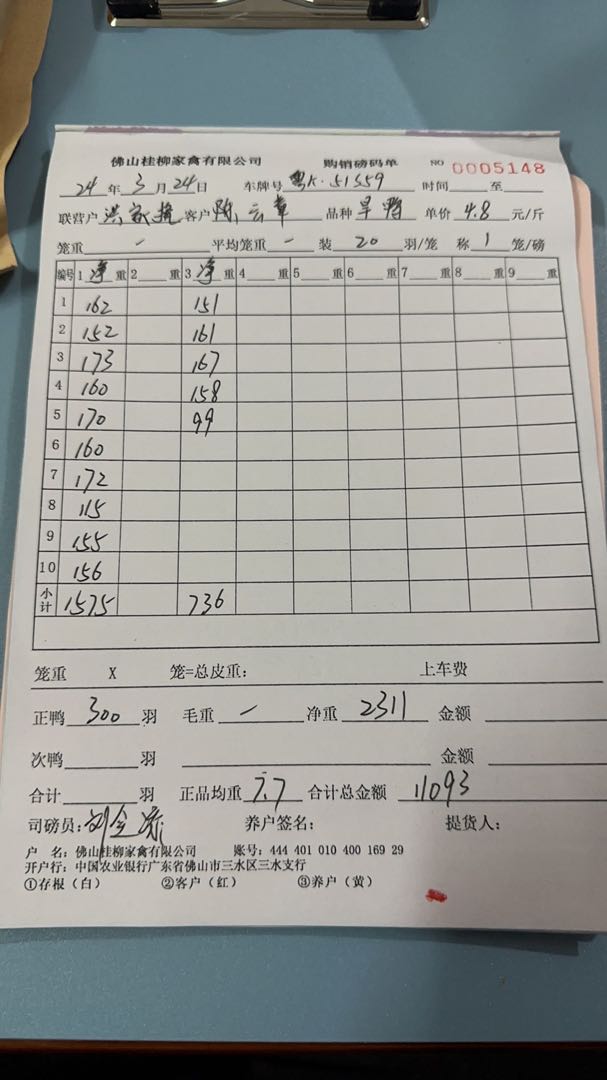 佛山桂柳家禽有限公司 购销磅码单 NO 0005148
24年3月24日 车牌号 粤K·51S59 时间 至
联营户 洪家 客户 陈云章 品种 旱鸭 单价 4.8 元/斤
笼重 — 平均笼重 — 装 20 羽/笼 称 1 笼/磅
编号 1 净 重 2 重 3 净 重 4 重 5 重 6 重 7 重 8 重 9 重
1 162 151
2 152 161
3 173 167
4 160 158
5 170 99
6 160
7 172
8 115
9 155
10 156
小计 1575 736
笼重 X 笼=总皮重: 上车费
正鸭 300 羽 毛重 — 净重 2311 金额
次鸭 羽 金额
合计 羽 正品均重 7.7 合计总金额 11093
司磅员: 刘 养户签名: 提货人:
户 名: 佛山桂柳家禽有限公司 账号: 444 401 010 400 169 29
开户行: 中国农业银行广东省佛山市三水区三水支行
①存根(白) ②客户(红) ③养户(黄)